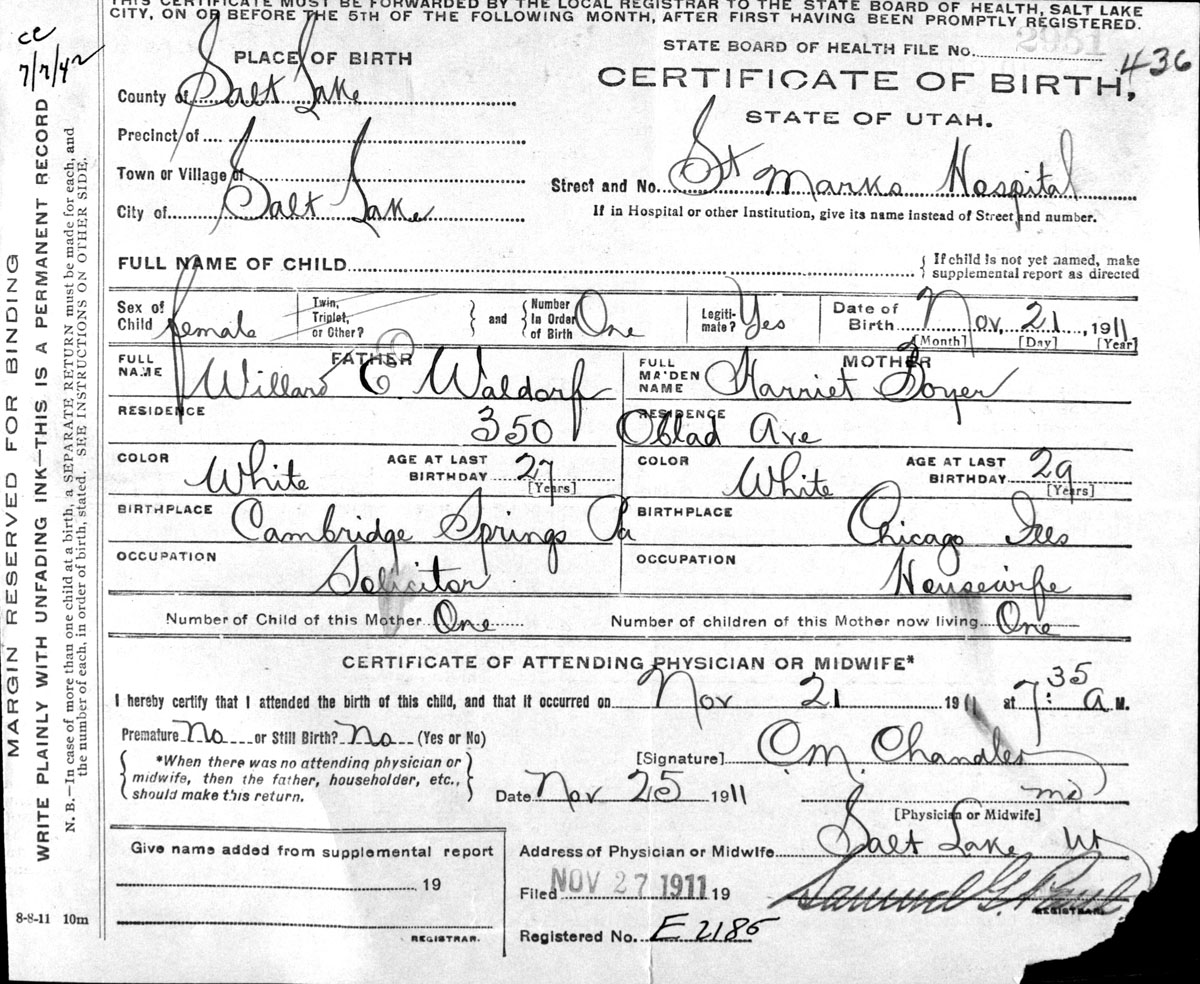 THIS CERTIFICATE MUST BE FORWARDED BY THE LOCAL REGISTRAR TO THE STATE BOARD OF HEALTH, SALT LAKE
CITY, ON OR BEFORE THE 5TH OF THE FOLLOWING MONTH, AFTER FIRST HAVING BEEN PROMPTLY REGISTERED.
cc
7/7/42
PLACE OF BIRTH
County of Salt Lake
Precinct of
Town or Village of
City of Salt Lake
STATE BOARD OF HEALTH FILE No. 2951
436
CERTIFICATE OF BIRTH,
STATE OF UTAH.
Street and No. St Marks Hospital
If in Hospital or other Institution, give its name instead of Street and number.
FULL NAME OF CHILD
If child is not yet named, make
supplemental report as directed
Sex of Child female
Twin, Triplet, or Other?
and
Number In Order of Birth One
Legitimate? Yes
Date of Birth Nov, 21, 1911
[Month] [Day] [Year]
FATHER
FULL NAME Willard C. Waldorf
RESIDENCE 350
COLOR White
AGE AT LAST BIRTHDAY 27
[Years]
BIRTHPLACE Cambridge Springs Pa
OCCUPATION Solicitor
MOTHER
FULL MAIDEN NAME Harriet
RESIDENCE Oblad Ave
COLOR White
AGE AT LAST BIRTHDAY 29
[Years]
BIRTHPLACE Chicago Ills
OCCUPATION Housewife
Number of Child of this Mother One
Number of children of this Mother now living One
CERTIFICATE OF ATTENDING PHYSICIAN OR MIDWIFE*
I hereby certify that I attended the birth of this child, and that it occurred on Nov 21 1911 at 7:35 a M.
Premature No or Still Birth? No (Yes or No)
*When there was no attending physician or
midwife, then the father, householder, etc.,
should make this return.
[Signature] O.M. Chandler
Date Nov 25 1911
md
[Physician or Midwife]
Address of Physician or Midwife Salt Lake Ut
Give name added from supplemental report
19
REGISTRAR.
Filed NOV 27 1911 19
Samuel G. Paul
REGISTRAR.
Registered No. E 2186
8-8-11 10m
MARGIN RESERVED FOR BINDING
WRITE PLAINLY WITH UNFADING INK—THIS IS A PERMANENT RECORD
N. B.—In case of more than one child at a birth, a SEPARATE RETURN must be made for each, and
the number of each, in order of birth, stated. SEE INSTRUCTIONS ON OTHER SIDE.